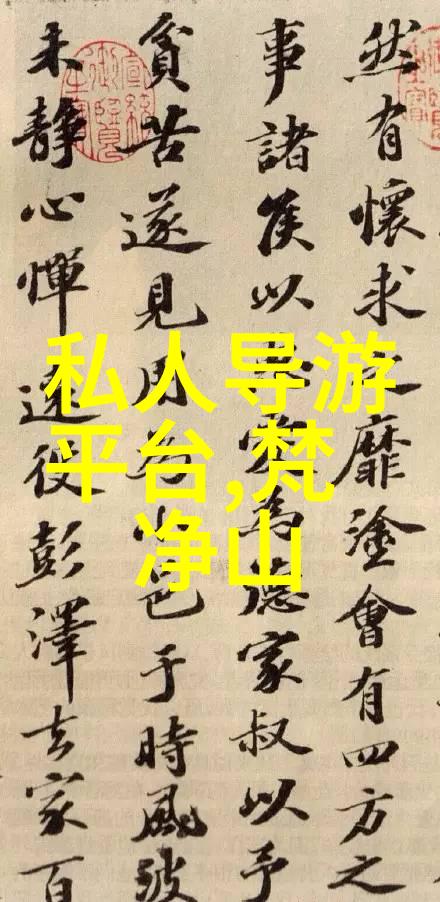 然有懷求之靡塗會有四方之
事諸侯以愛為德家叔以予
貧苦遂見用為小邑于時風波
未靜心憚遠役彭澤去家百
私人导游
平台,梵
净山